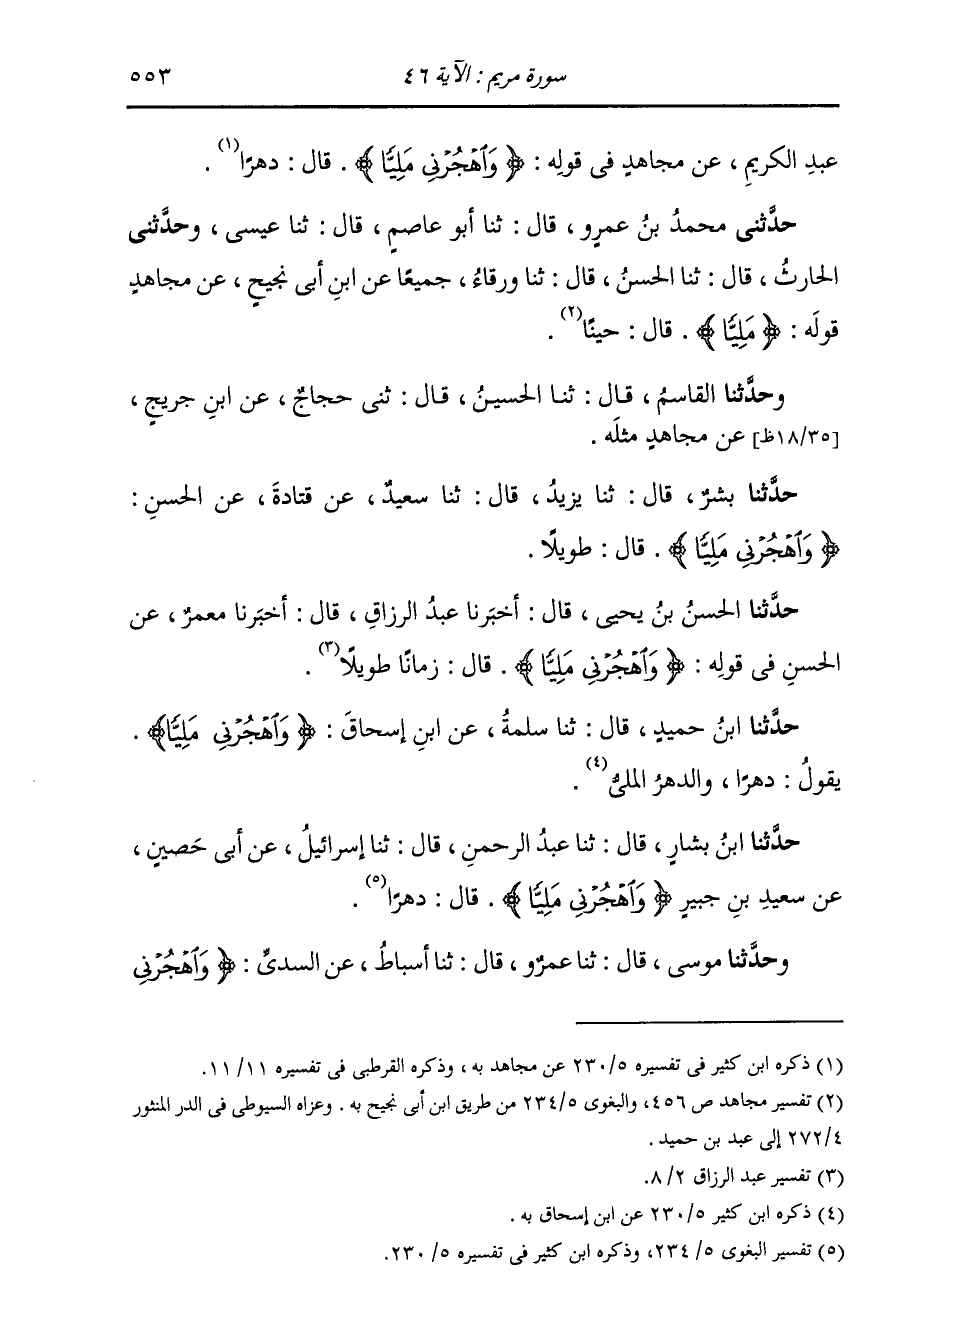 سورة مريم : الآية ٤٦ ٥٥٣
عبدِ الكريمِ ، عن مجاهدٍ فى قولِه : ﴿ وَٱهْجُرْنِى مَلِيًّا ﴾ . قال : دهرًا(١) .
حدَّثنى محمدُ بنُ عمرٍو ، قال : ثنا أبو عاصمٍ ، قال : ثنا عيسى ، وحدَّثنى
الحارثُ ، قال : ثنا الحسنُ ، قال : ثنا ورقاءُ ، جميعًا عن ابنِ أبى نجيحٍ ، عن مجاهدٍ
قولَه : ﴿ مَلِيًّا ﴾ . قال : حينًا(٢) .
وحدَّثنا القاسمُ ، قال : ثنا الحسينُ ، قال : ثنى حجاجٌ ، عن ابنِ جريجٍ ،
[١٨/٣٥ظ] عن مجاهدٍ مثلَه .
حدَّثنا بشرٌ ، قال : ثنا يزيدُ ، قال : ثنا سعيدٌ ، عن قتادةَ ، عن الحسنِ :
﴿ وَٱهْجُرْنِى مَلِيًّا ﴾ . قال : طويلًا .
حدَّثنا الحسنُ بنُ يحيى ، قال : أخبَرنا عبدُ الرزاقِ ، قال : أخبَرنا معمرٌ ، عن
الحسنِ فى قولِه : ﴿ وَٱهْجُرْنِى مَلِيًّا ﴾ . قال : زمانًا طويلًا(٣) .
حدَّثنا ابنُ حميدٍ ، قال : ثنا سلمةُ ، عن ابنِ إسحاقَ : ﴿ وَٱهْجُرْنِى مَلِيًّا﴾ .
يقولُ : دهرًا ، والدهرُ الملىُّ(٤) .
حدَّثنا ابنُ بشارٍ ، قال : ثنا عبدُ الرحمنِ ، قال : ثنا إسرائيلُ ، عن أبى حَصينٍ ،
عن سعيدِ بنِ جبيرٍ ﴿ وَٱهْجُرْنِى مَلِيًّا ﴾ . قال : دهرًا(٥) .
وحدَّثنا موسى ، قال : ثنا عمرٌو ، قال : ثنا أسباطُ ، عن السدىِّ : ﴿ وَٱهْجُرْنِى
(١) ذكره ابن كثير فى تفسيره ٢٣٠/٥ عن مجاهد به ، وذكره القرطبى فى تفسيره ١١/١١.
(٢) تفسير مجاهد ص ٤٥٦، والبغوى ٢٣٤/٥ من طريق ابن أبى نجيح به . وعزاه السيوطى فى الدر المنثور
٢٧٢/٤ إلى عبد بن حميد .
(٣) تفسير عبد الرزاق ٨/٢.
(٤) ذكره ابن كثير ٢٣٠/٥ عن ابن إسحاق به .
(٥) تفسير البغوى ٢٣٤/٥، وذكره ابن كثير فى تفسيره ٢٣٠/٥.